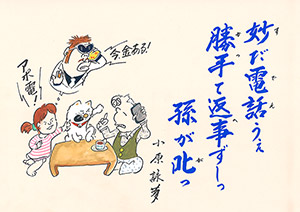 妙だ電話うぇ
勝手て返事ずしっ
孫が叱っ
今、金ある!
アポ電!
小原